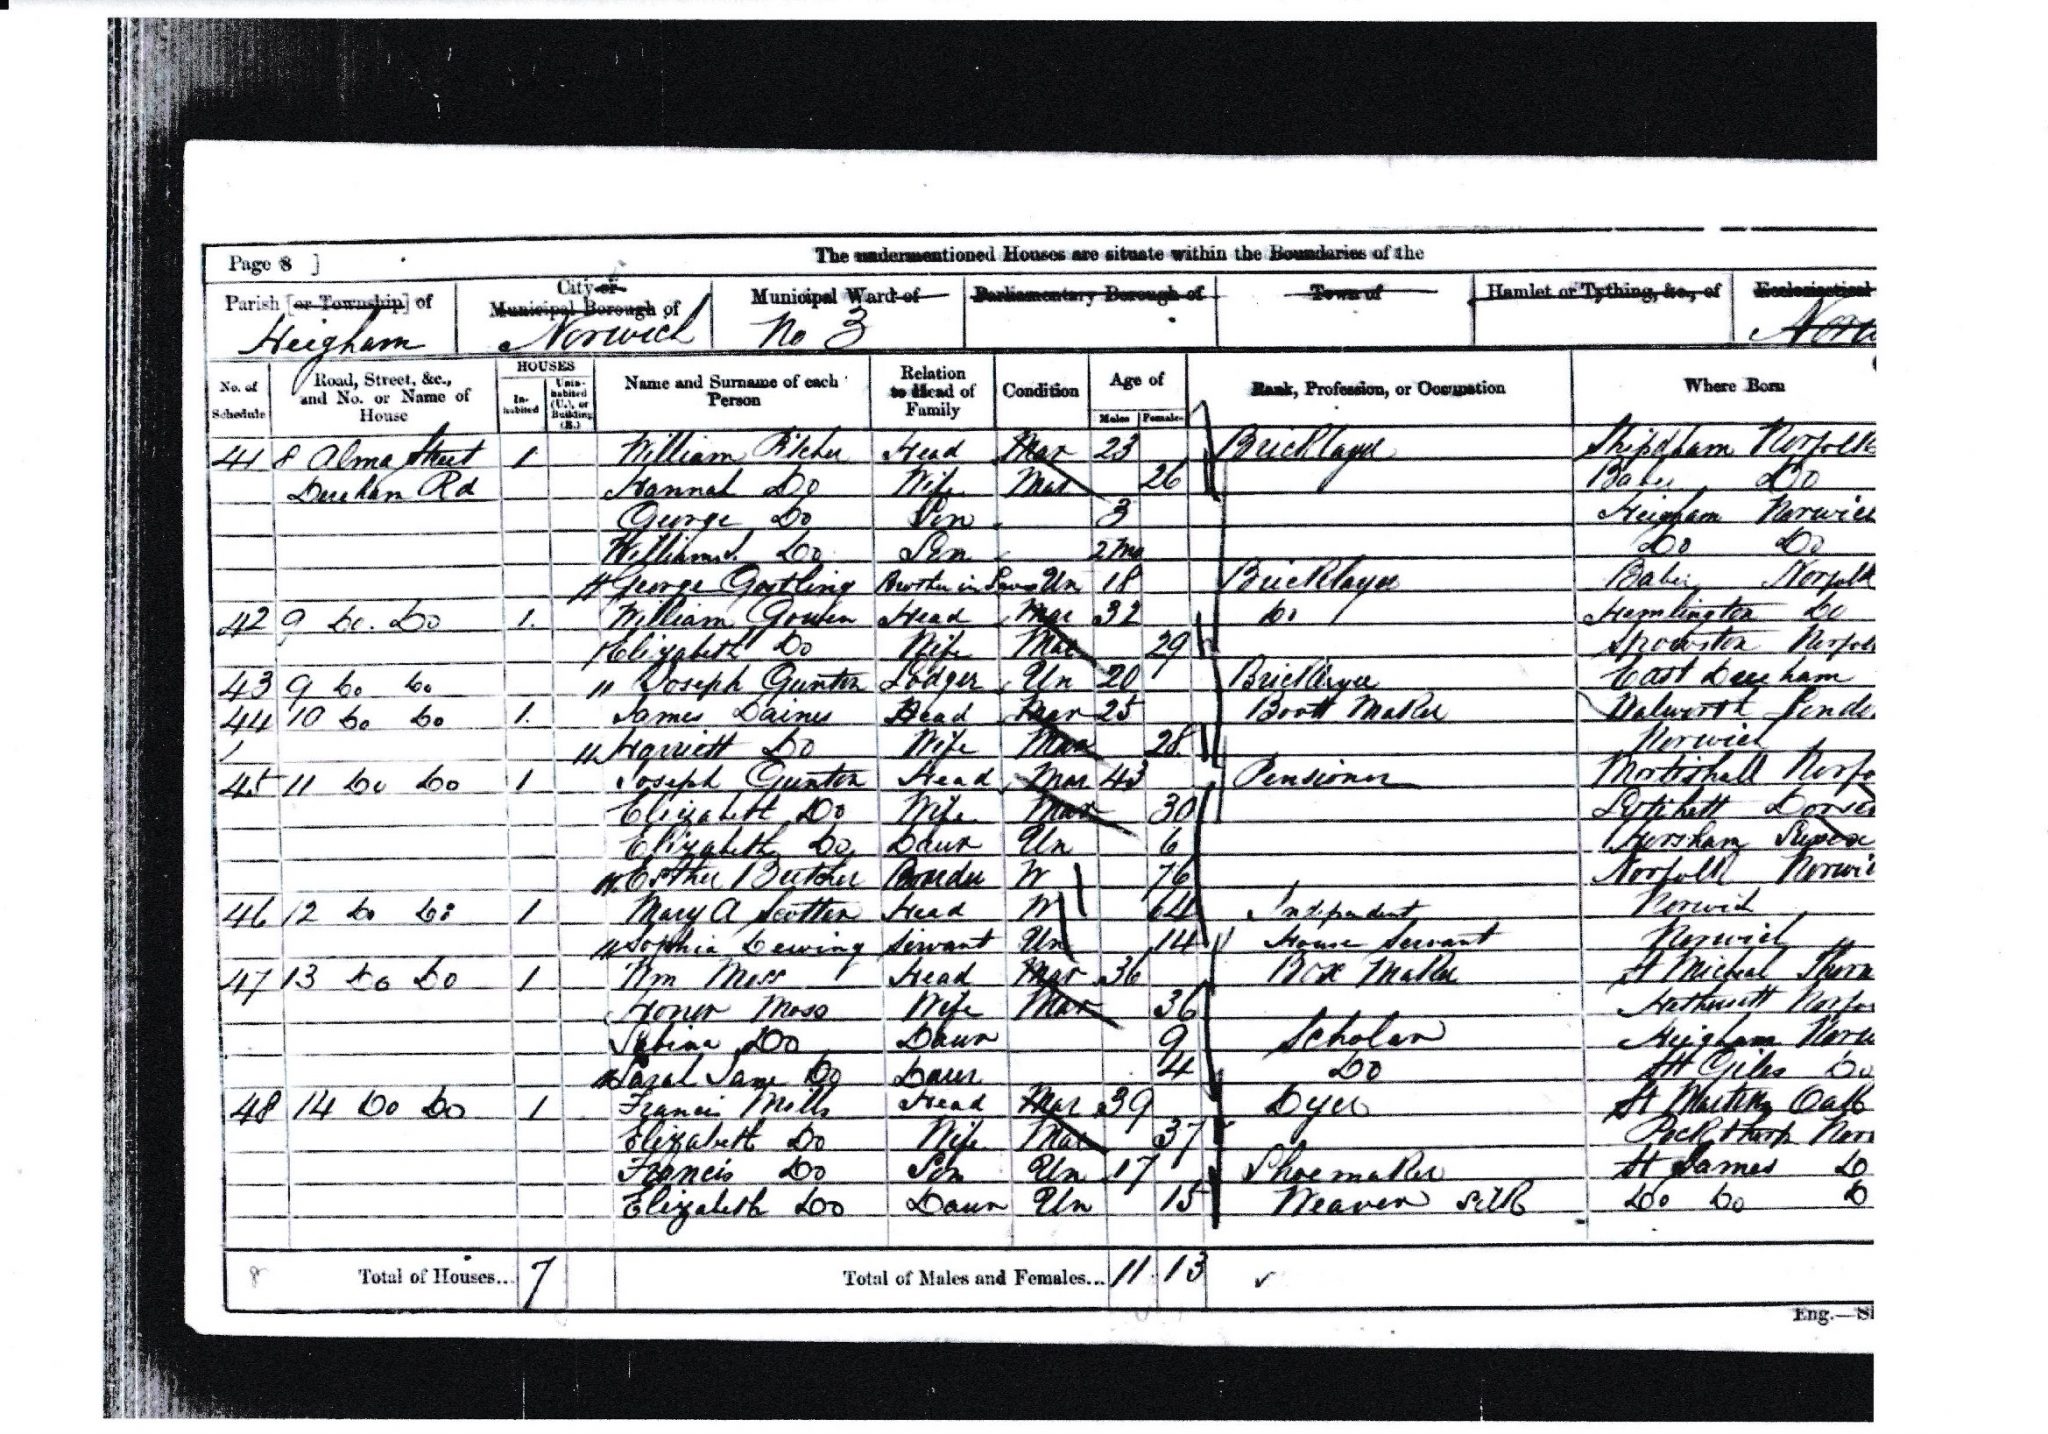 Page 8 ]
The undermentioned Houses are situate within the Boundaries of the
Parish [or Township] of City or Municipal Borough of Municipal Ward of Parliamentary Borough of Town of Hamlet or Tything, &c., of Ecclesiastical
Heigham Norwich No 3
No. of Schedule Road, Street, &c., and No. or Name of House HOUSES Inhabited Uninhabited (U.), or Building (B.) Name and Surname of each Person Relation to Head of Family Condition Age of Males Females Rank, Profession, or Occupation Where Born
41 8 Alma Street 1 William Pitcher Head Mar 23 Bricklayer Shipdham Norfolk
Dereham Rd Hannah Do Wife Mar 26 Do
George Do Son 3 Heigham Norwich
William Do Son 2 Mo Do Do
George Gostling Brother in Law Un 18 Bricklayer Norfolk
42 9 Do Do 1 William Gowen Head Mar 32 Do Hemlington Do
Elizabeth Do Wife Mar 29 Sprowston Norfolk
43 9 Do Do Joseph Gunton Lodger Un 20 Bricklayer East Dereham
44 10 Do Do 1 James Daines Head Mar 25 Boot Maker Walworth
Harriett Do Wife Mar 28 Norwich
45 11 Do Do 1 Joseph Gunton Head Mar 43 Pensioner
Elizabeth Do Wife Mar 30 Lytchett
Elizabeth Do Daur Un 6 Horsham Sussex
Esther Butcher W 76 Norfolk
46 12 Do Do 1 Mary A Scotten Head W 64 Independent Norwich
Sophia Dewing Servant Un 14 House Servant Norwich
47 13 Do Do 1 Wm Moss Head Mar 36 Box Maker St Micheal
Honor Moss Wife Mar 36
Sabina Do Daur 9 Scholar Heigham
Sarah Jane Do Daur 4 Do St Giles Do
48 14 Do Do 1 Francis Mills Head Mar 39 Dyer St Martin Oak
Elizabeth Do Wife Mar 37 Pockthorp
Francis Do Son Un 17 Shoemaker St James D
Elizabeth Do Daur Un 15 Weaver Silk Do Do D
8 Total of Houses... 7 Total of Males and Females... 11 13
Eng.—